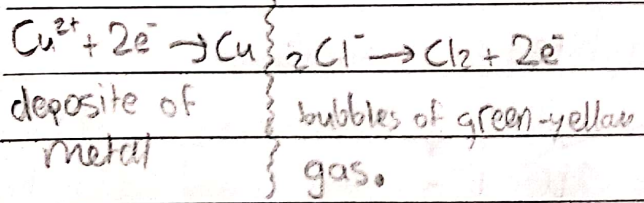 Cu²⁺ + 2e⁻ → Cu 2Cl⁻ → Cl₂ + 2e⁻
deposite of bubbles of green-yellow
metal gas.